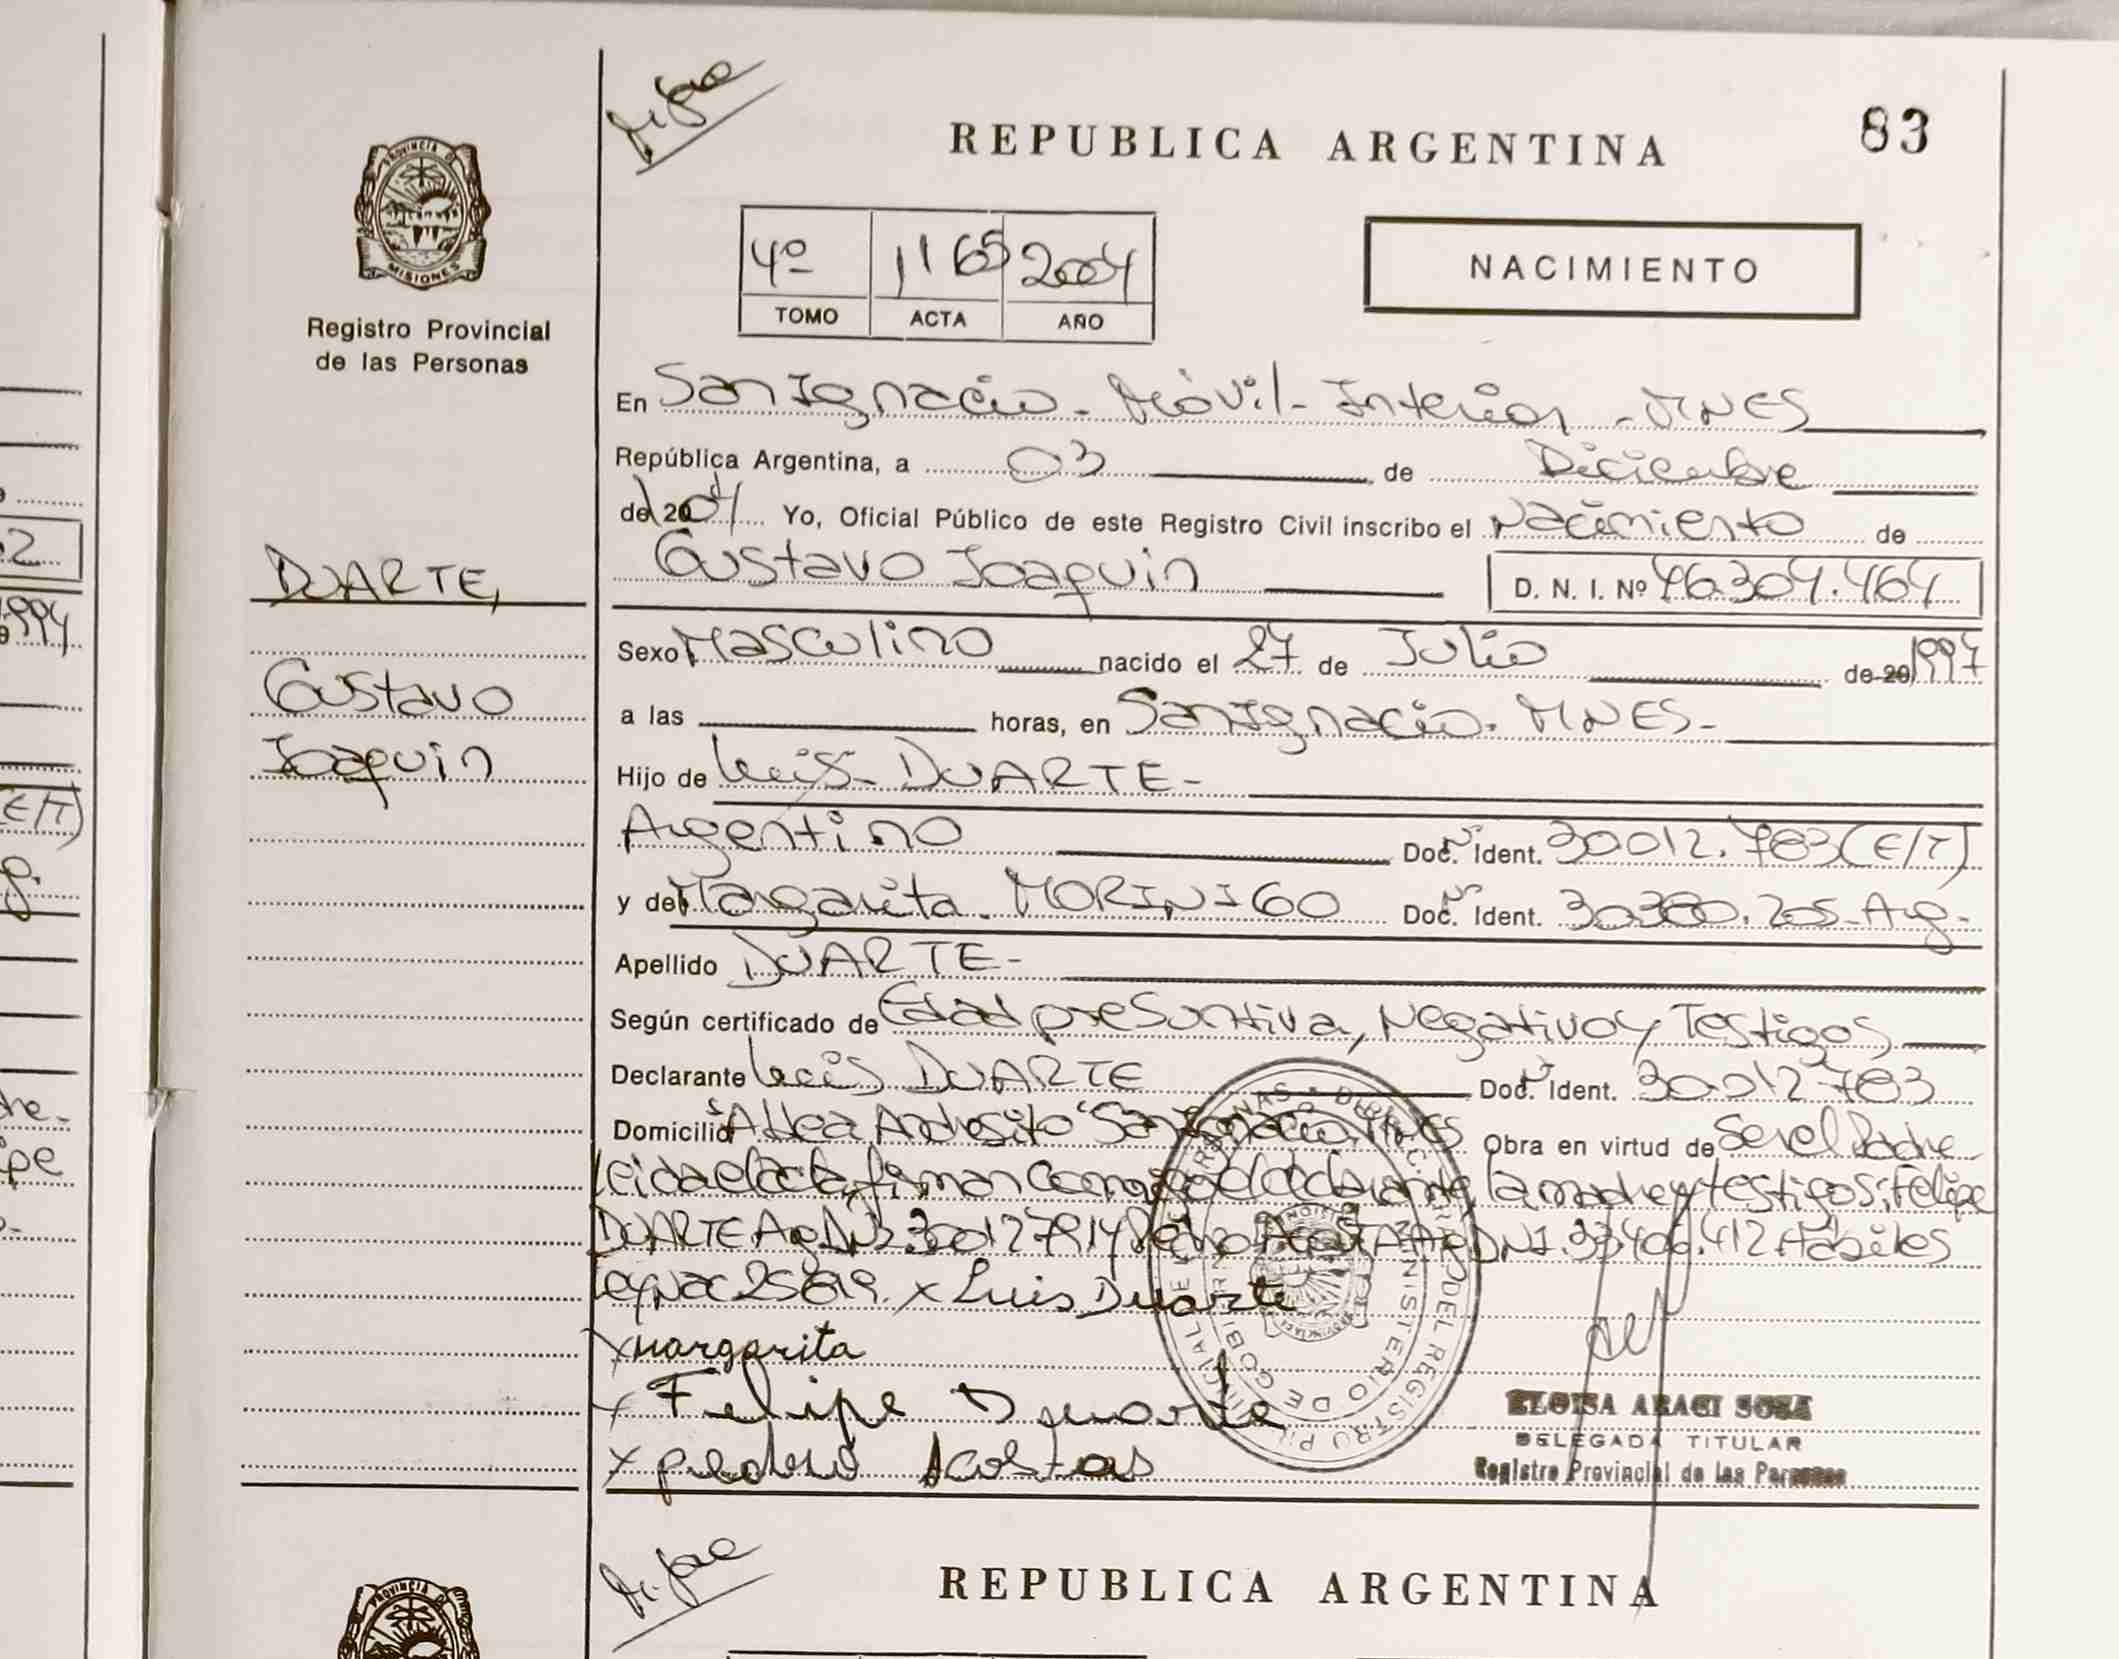 Mi. fae
REPUBLICA ARGENTINA
83
PROVINCIA D
MISIONES
Registro Provincial
de las Personas
4º 1165 2004
TOMO ACTA AÑO
NACIMIENTO
En San Ignacio - Móvil - Interior - MNES
República Argentina, a 03 de Diciembre
de 2004 Yo, Oficial Público de este Registro Civil inscribo el Nacimiento de
Gustavo Joaquin
D. N. I. Nº 46.304.464
DUARTE,
Gustavo
Joaquin
Sexo Masculino nacido el 27 de Julio de 20 1997
a las horas, en San Ignacio. MNES-
Hijo de Luis - DUARTE -
Argentino Doc. Nº Ident. 30012.783 (E/T)
y de Margarita. MORINIGO Doc. Nº Ident. 30.380.205 - Arg.
Apellido DUARTE -
Según certificado de Edad presuntiva, Negativo y Testigos
Declarante Luis DUARTE Doc. Nº Ident. 30.012.783
Domicilio "Aldea Andresito" San Ignacio, Mnes Obra en virtud de Ser el Padre
Leida el acta, firman como el declarante, la madre y testigos: Felipe
DUARTE Arg. DNI. 30012791 y Pedro ACOSTA Arg DNI. 33.406.412 Hábiles
Ley Nac 25819. x Luis Duarte
x Margarita
x Felipe Duarte
x pedro Acostas
ELOISA ARACI SOSA
DELEGADA TITULAR
Registro Provincial de las Personas
REPUBLICA ARGENTINA